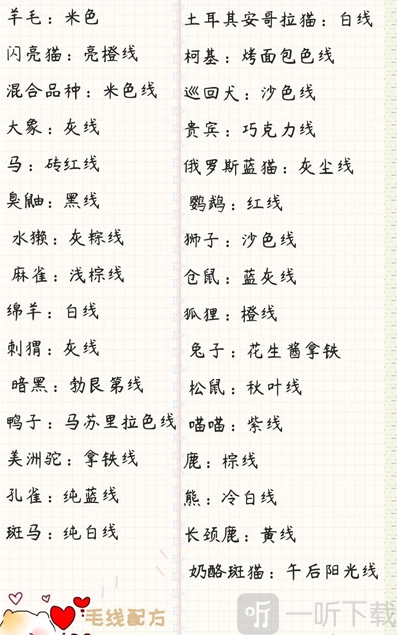 羊毛：米色
闪亮猫：亮橙线
混合品种：米色线
大象：灰线
马：砖红线
臭鼬：黑线
水獭：灰棕线
麻雀：浅棕线
绵羊：白线
刺猬：灰线
暗黑：勃艮第线
鸭子：马苏里拉色线
美洲驼：拿铁线
孔雀：纯蓝线
斑马：纯白线
毛线配方
土耳其安哥拉猫：白线
柯基：烤面包色线
巡回犬：沙色线
贵宾：巧克力线
俄罗斯蓝猫：灰尘线
鹦鹉：红线
狮子：沙色线
仓鼠：蓝灰线
狐狸：橙线
兔子：花生酱拿铁
松鼠：秋叶线
喵喵：紫线
鹿：棕线
熊：冷白线
长颈鹿：黄线
奶酪斑猫：午后阳光线
听 一听下载